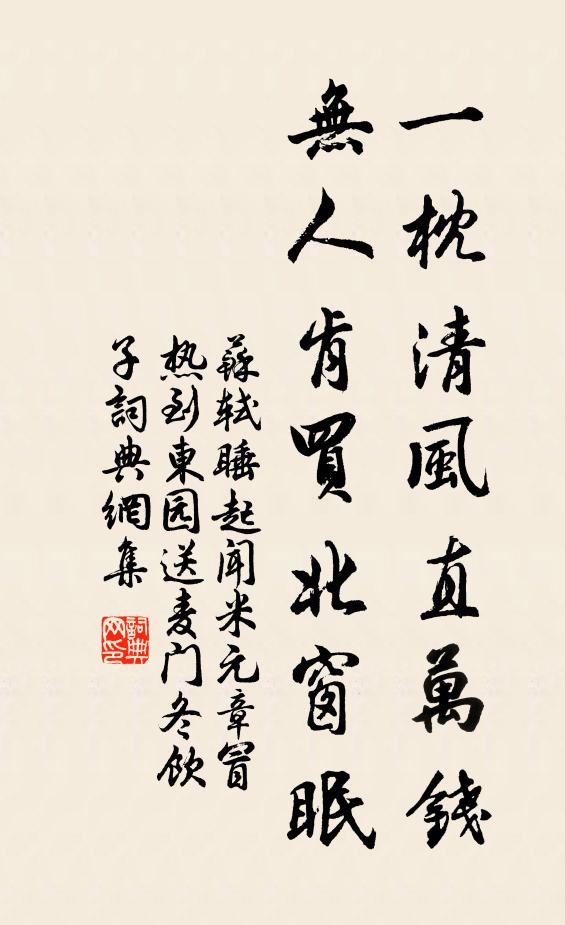 一枕清風直萬錢
無人肯買北窗眠
蘇軾睡起聞米元章冒
热到東园送麦门冬飲
子詞典網集
詞典
网印